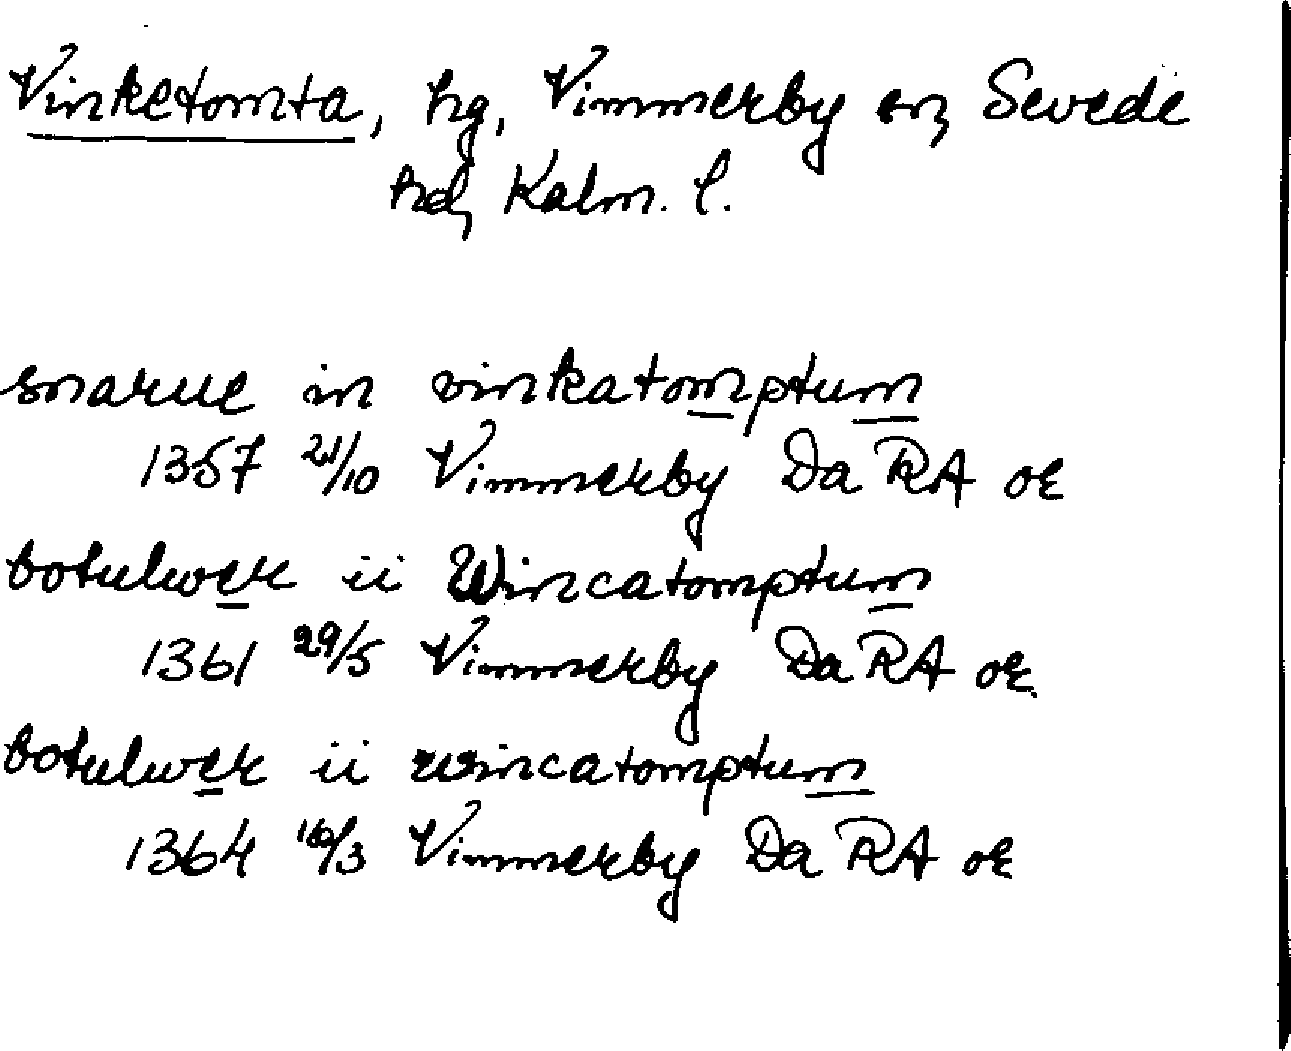 Vinketomta, hg, Vimmerby sn, Sevede
hd, Kalm. l.
snarue in vinkatomptum
1357 21/10 Vimmerby Da RA or
botulwer ii Wincatomptum
1361 29/5 Vimmerby Da RA or
botulwer ii wincatomptum
1364 16/3 Vimmerby Da RA or